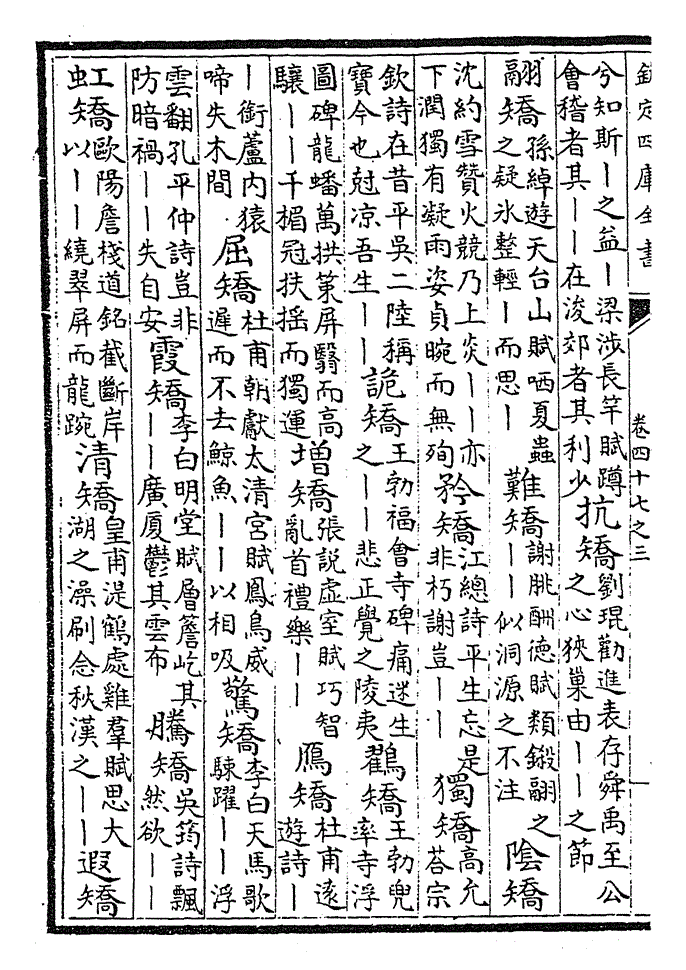 欽定四庫全書 卷四十七之三 一
兮知斯丨之益丨梁涉長竿賦蹲會稽者其丨丨在浚郊者其利少抗矯劉琨勸進表存舜禹至公之心狹巢由丨丨之節
翮矯孫綽遊天台山賦哂夏蟲之疑氷整輕丨而思丨難矯謝朓酬德賦類鎩翮之丨丨似洞源之不注陰矯
沈約雪贊火競乃上炎丨丨亦下潤獨有凝雨姿貞晼而無殉矜矯江總詩平生忘是非朽謝豈丨丨獨矯高允荅宗
欽詩在昔平吳二陸稱寶今也尅凉吾生丨丨詭矯王勃福會寺碑痛迷生之丨丨悲正覺之陵夷鸛矯王勃兜率寺浮
圖碑龍蟠萬拱第屏翳而高驤丨丨千楣冠扶揺而獨運增矯張說虛室賦巧智亂首禮樂丨丨鴈矯杜甫遠遊詩丨
丨銜蘆內猿啼失木間屈矯杜甫朝獻太清宮賦鳳鳥威遲而不去鯨魚丨丨以相吸驚矯李白天馬歌駷躍丨丨浮
雲翻孔平仲詩豈非防暗禍丨丨失自安霞矯李白明堂賦層簷屹其丨丨廣厦鬱其雲布騰矯吳筠詩飄然欲丨丨
虹矯歐陽詹棧道銘截斷岸以丨丨繞翠屏而龍踠清矯皇甫湜鶴處雞羣賦思大湖之澡刷念秋漢之丨丨遐矯